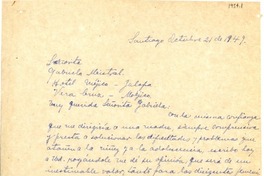 Santiago Octubre 21 de 1949.
Señorita
Gabriela Mistral.
Hotel Méjico - Jalapa
Vera Cruz - Méjico
Muy querida Señorita Gabriela:
Con la misma confianza
que me dirigiría a una madre, siempre comprensiva
y presta a solucionar las dificultades y problemas que
atañen a la niñez y a la adolescencia, escribo hoy
a Ud. rogándole me dé su opinión, que será de un
inestimable valor, tanto para las dirigentes